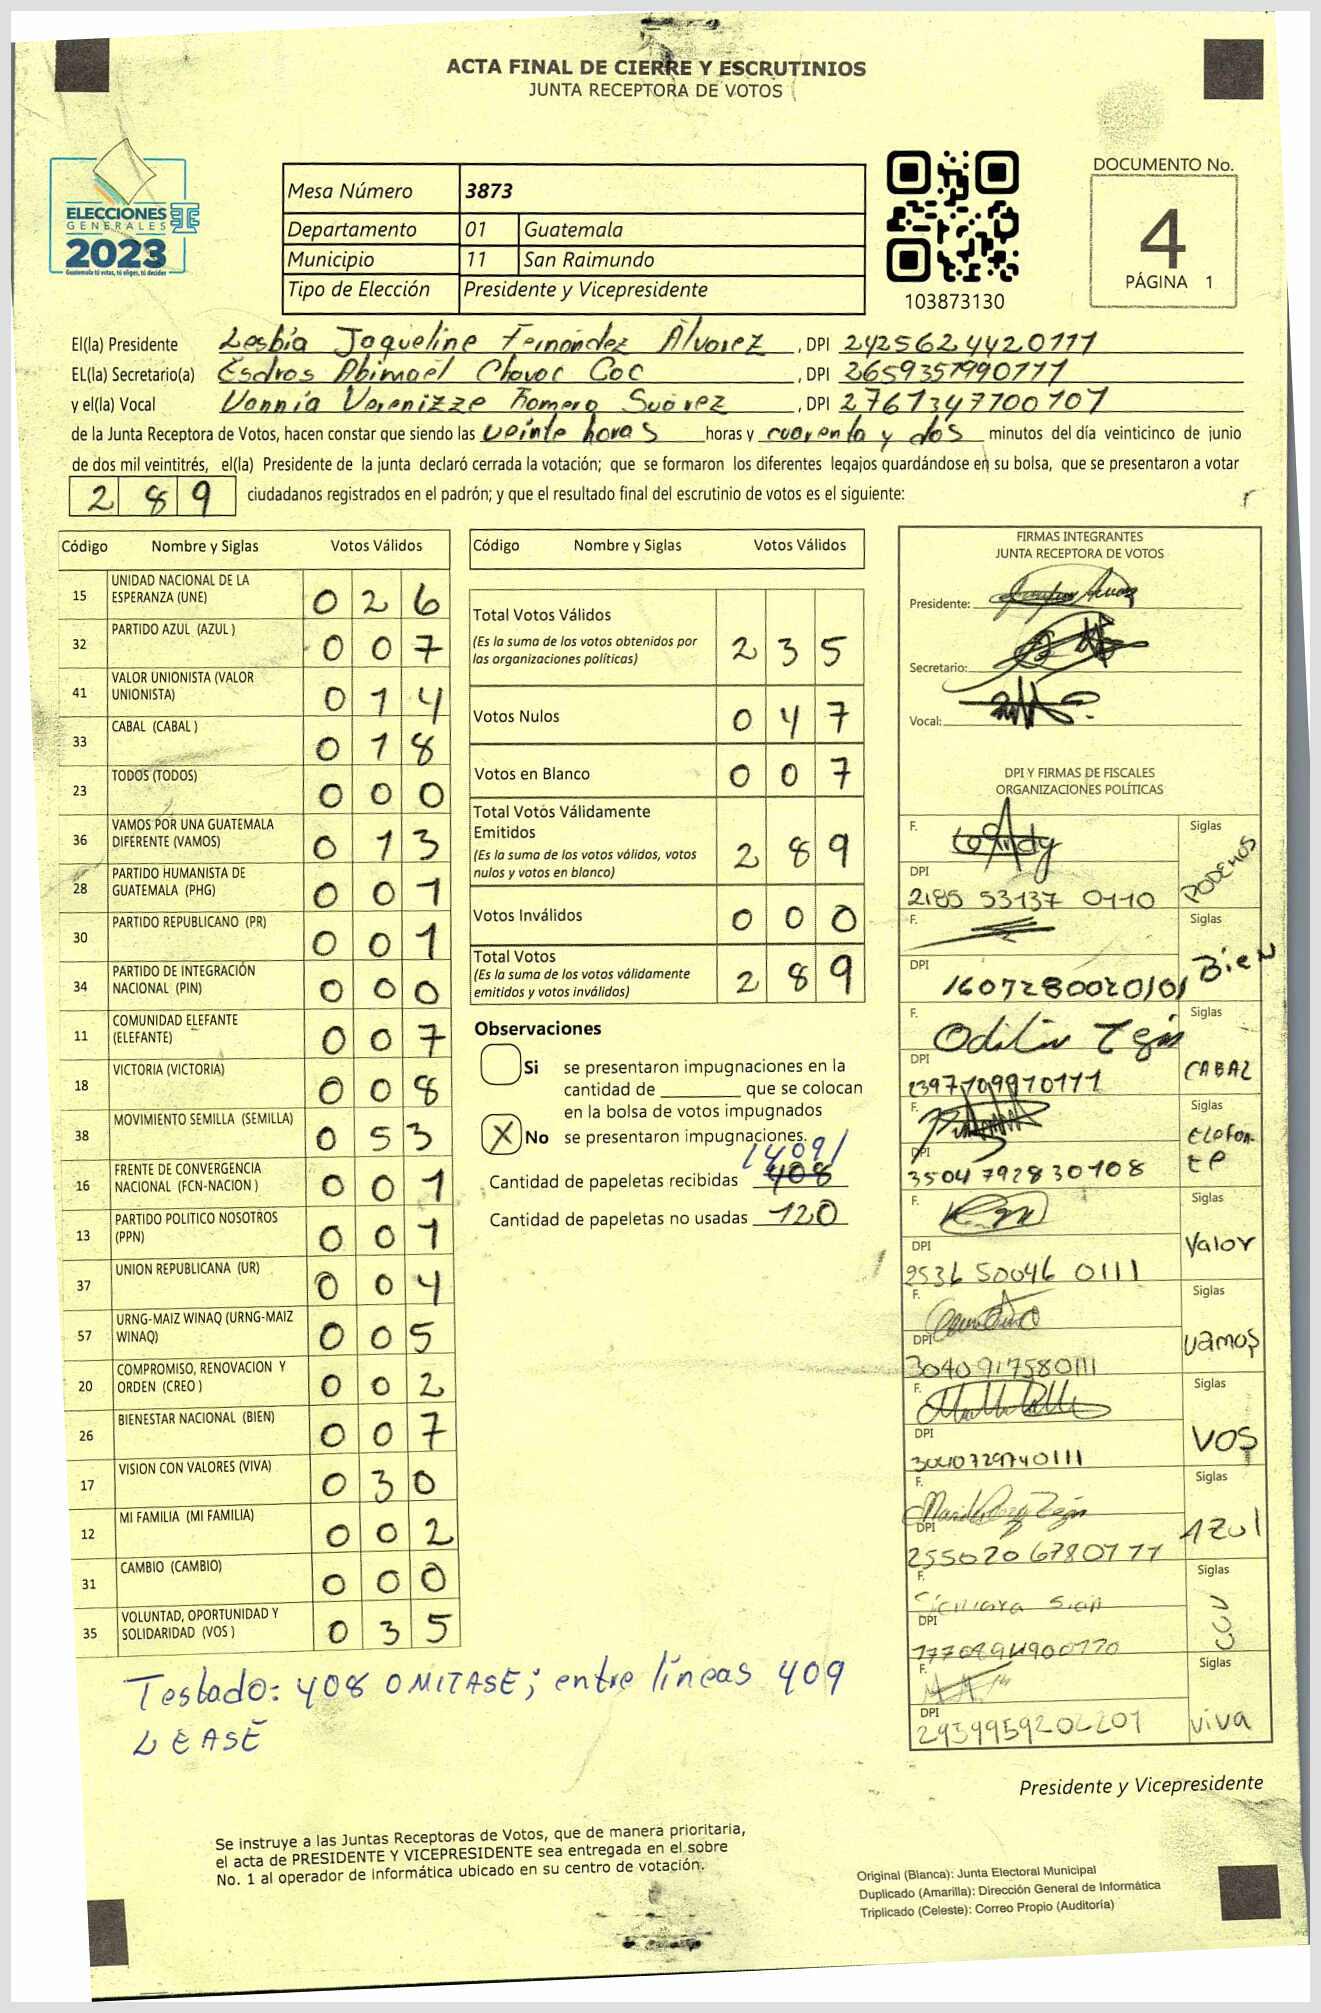 ACTA FINAL DE CIERRE Y ESCRUTINIOS
JUNTA RECEPTORA DE VOTOS
ELECCIONES
GENERALES
2023
Guatemala tú votas, tú eliges, tú decides
Mesa Número 3873
Departamento 01 Guatemala
Municipio 11 San Raimundo
Tipo de Elección Presidente y Vicepresidente
103873130
DOCUMENTO No.
4
PÁGINA 1
El(la) Presidente Lesbia Jaqueline Fernández Álvarez , DPI 2425624420111
EL(la) Secretario(a) Esdras Abimael Chavac Coc , DPI 2659357990111
y el(la) Vocal Vannia Verenizze Romero Suárez , DPI 2761347700101
de la Junta Receptora de Votos, hacen constar que siendo las veinte horas horas y cuarenta y dos minutos del día veinticinco de junio
de dos mil veintitrés, el(la) Presidente de la junta declaró cerrada la votación; que se formaron los diferentes legajos guardándose en su bolsa, que se presentaron a votar
289 ciudadanos registrados en el padrón; y que el resultado final del escrutinio de votos es el siguiente:
Código Nombre y Siglas Votos Válidos
15 UNIDAD NACIONAL DE LA ESPERANZA (UNE) 026
32 PARTIDO AZUL (AZUL ) 007
41 VALOR UNIONISTA (VALOR UNIONISTA) 014
33 CABAL (CABAL ) 018
23 TODOS (TODOS) 000
36 VAMOS POR UNA GUATEMALA DIFERENTE (VAMOS) 013
28 PARTIDO HUMANISTA DE GUATEMALA (PHG) 001
30 PARTIDO REPUBLICANO (PR) 001
34 PARTIDO DE INTEGRACIÓN NACIONAL (PIN) 000
11 COMUNIDAD ELEFANTE (ELEFANTE) 007
18 VICTORIA (VICTORIA) 008
38 MOVIMIENTO SEMILLA (SEMILLA) 053
16 FRENTE DE CONVERGENCIA NACIONAL (FCN-NACION ) 001
13 PARTIDO POLITICO NOSOTROS (PPN) 001
37 UNION REPUBLICANA (UR) 004
57 URNG-MAIZ WINAQ (URNG-MAIZ WINAQ) 005
20 COMPROMISO, RENOVACION Y ORDEN (CREO ) 002
26 BIENESTAR NACIONAL (BIEN) 007
17 VISION CON VALORES (VIVA) 030
12 MI FAMILIA (MI FAMILIA) 002
31 CAMBIO (CAMBIO) 000
35 VOLUNTAD, OPORTUNIDAD Y SOLIDARIDAD (VOS ) 035
Código Nombre y Siglas Votos Válidos
Total Votos Válidos 235
(Es la suma de los votos obtenidos por
las organizaciones políticas)
Votos Nulos 047
Votos en Blanco 007
Total Votos Válidamente
Emitidos 289
(Es la suma de los votos válidos, votos
nulos y votos en blanco)
Votos Inválidos 000
Total Votos 289
(Es la suma de los votos válidamente
emitidos y votos inválidos)
Observaciones
Si se presentaron impugnaciones en la
cantidad de ________ que se colocan
en la bolsa de votos impugnados
X No se presentaron impugnaciones.
/409/
Cantidad de papeletas recibidas 408
Cantidad de papeletas no usadas 120
FIRMAS INTEGRANTES
JUNTA RECEPTORA DE VOTOS
Presidente:
Secretario:
Vocal:
DPI Y FIRMAS DE FISCALES
ORGANIZACIONES POLÍTICAS
F. Siglas
DPI PODEMOS
2185 53137 0110
F. Siglas
DPI Bien
1607280020101
F. Siglas
DPI CABAL
2397709910111
F. Siglas
DPI Elefante
3504792830108
F. Siglas
DPI Valor
2536 50046 0111
F. Siglas
DPI vamos
3040917580111
F. Siglas
DPI VOS
3040729740111
F. Siglas
DPI Azul
2550206780111
F. Siglas
DPI
F. Siglas
DPI viva
Testado: 408 OMITASE; entre líneas 409
LEASE
Presidente y Vicepresidente
Se instruye a las Juntas Receptoras de Votos, que de manera prioritaria,
el acta de PRESIDENTE Y VICEPRESIDENTE sea entregada en el sobre
No. 1 al operador de informática ubicado en su centro de votación.
Original (Blanca): Junta Electoral Municipal
Duplicado (Amarilla): Dirección General de Informática
Triplicado (Celeste): Correo Propio (Auditoría)